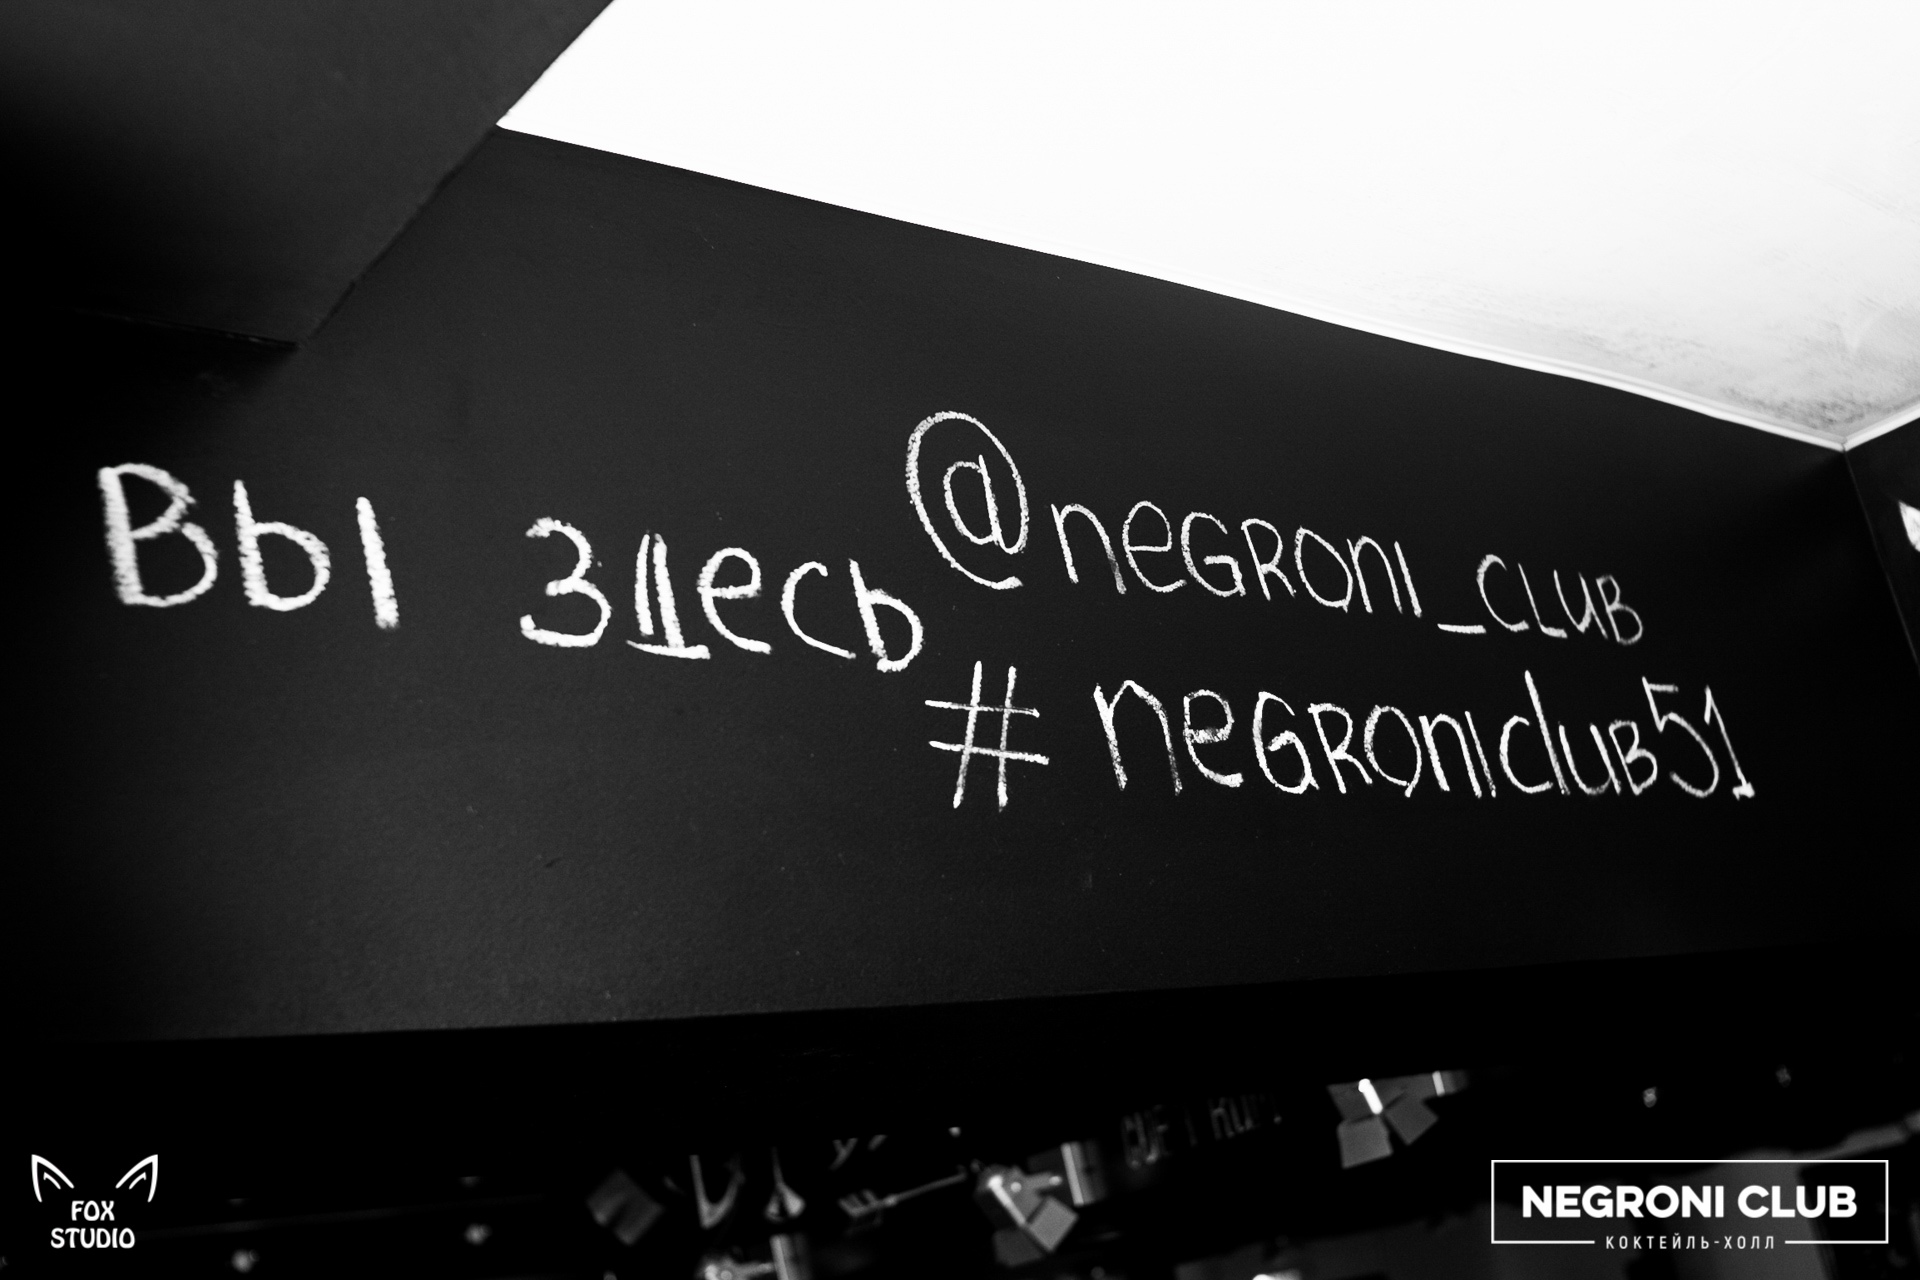 Вы здесь @negroni_club
# negroniclub51
FOX
STUDIO
NEGRONI CLUB
КОКТЕЙЛЬ-ХОЛЛ